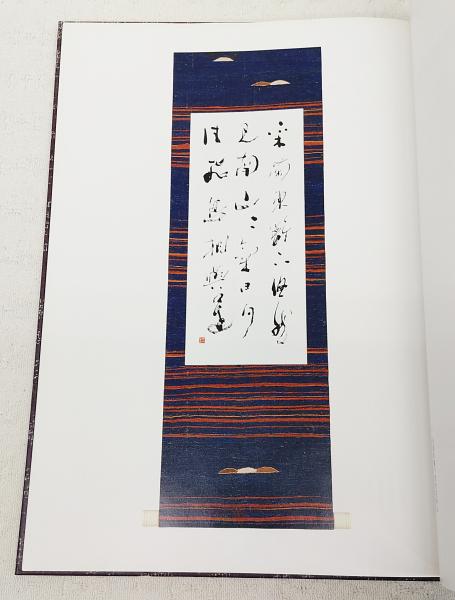 采菊東籬下悠然
見南山〻氣日夕
佳飛鳥相與還